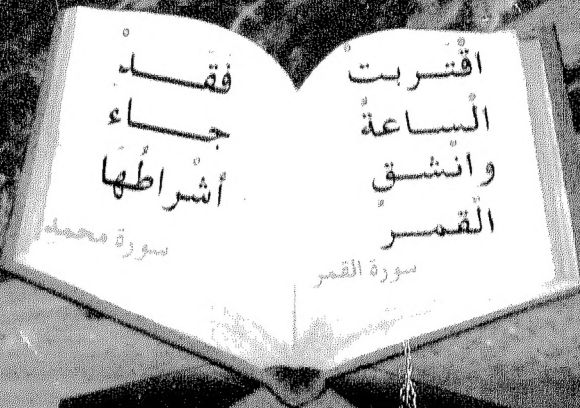 اقْتَربتْ
الْساعةُ
وانْشقَ
الْقمرُ
سورة القمر
فَقَدْ
جاء
أشْراطُهَا
سورة محمد